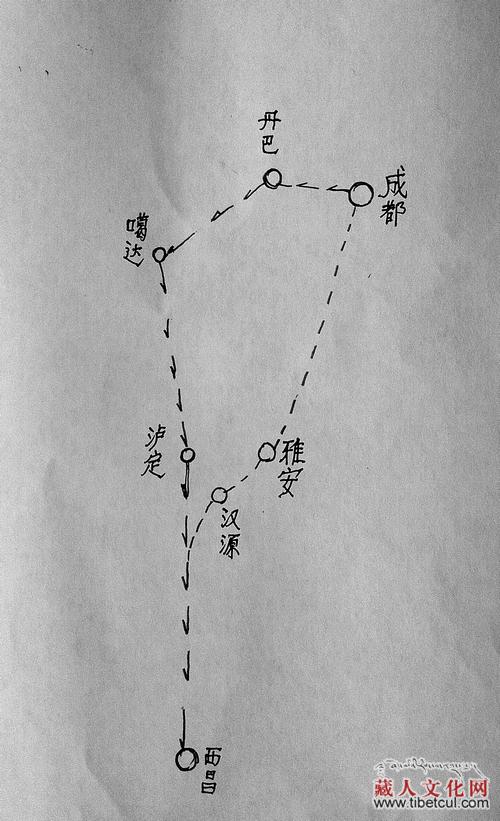 丹巴
成都
噶达
泸定
雅安
汉源
西昌
藏人文化网
www.tibetcul.com